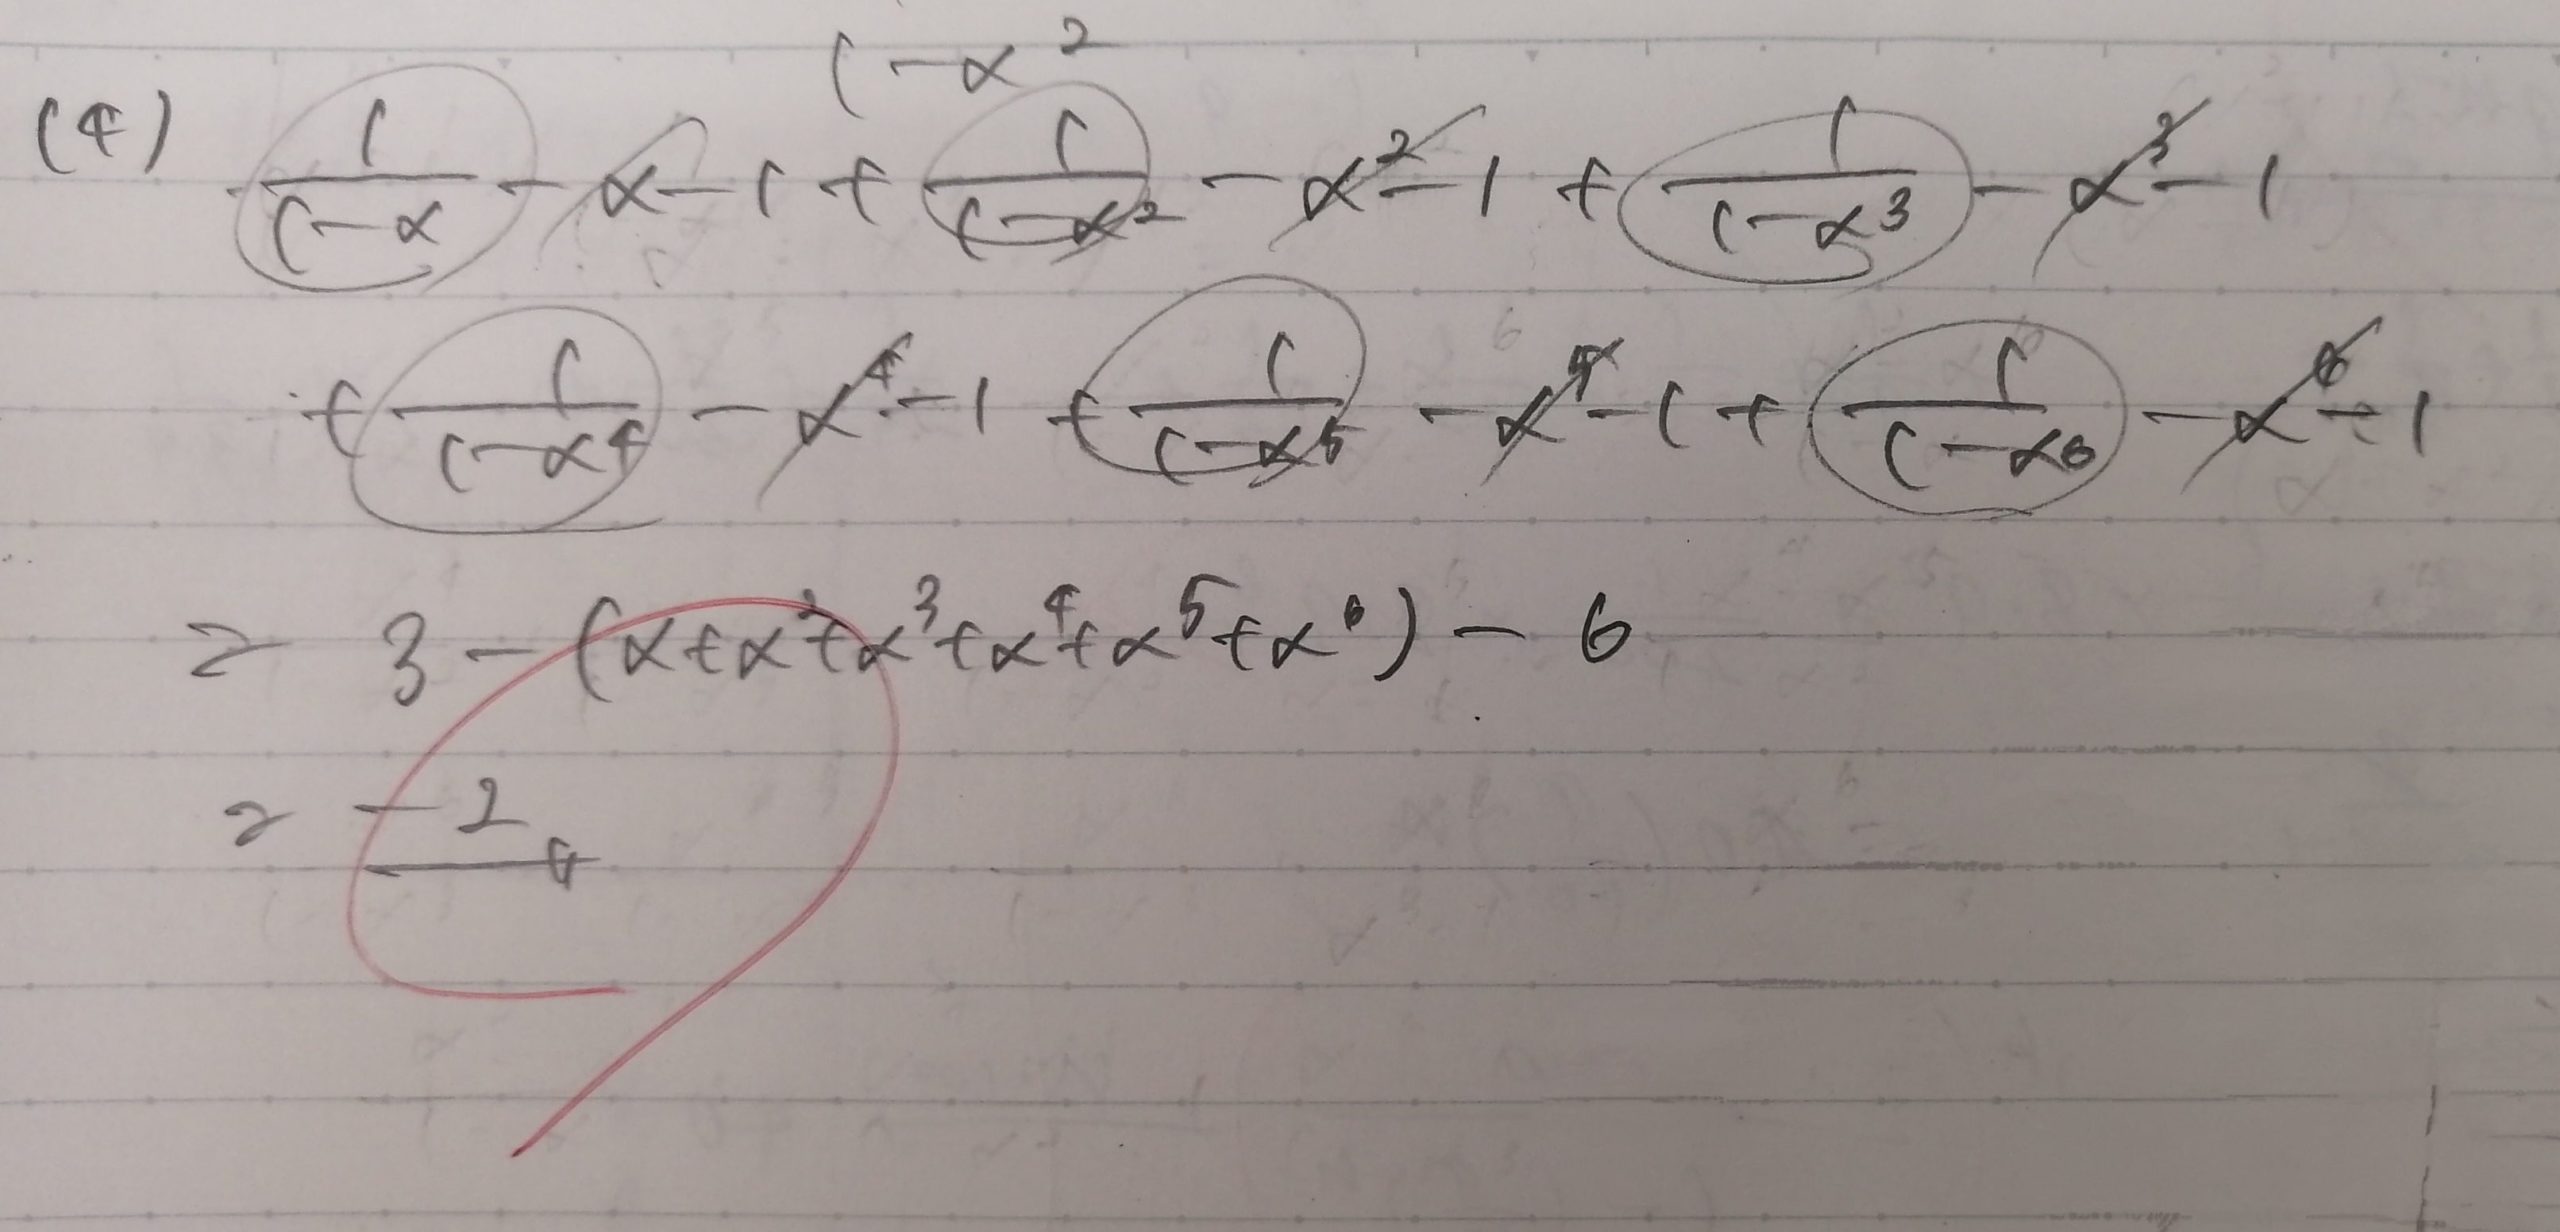 1-α²
(4) 1/(1-α) - α - 1 + 1/(1-α²) - α² - 1 + 1/(1-α³) - α³ - 1
+ 1/(1-α⁴) - α⁴ - 1 + 1/(1-α⁵) - α⁵ - 1 + 1/(1-α⁶) - α⁶ - 1
= 3 - (α+α²+α³+α⁴+α⁵+α⁶) - 6
= -2